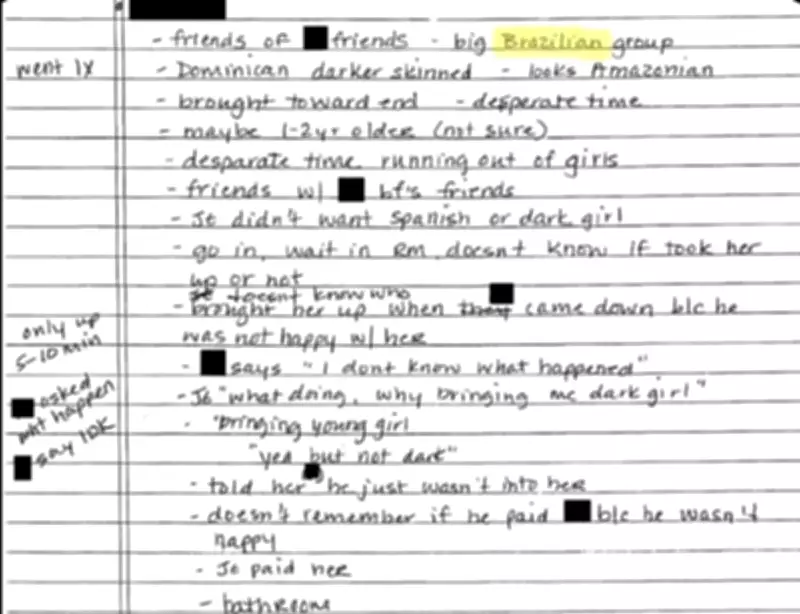 - friends of friends - big Brazilian group
went 1x
- Dominican darker skinned - looks Amazonian
- brought toward end - desperate time
- maybe 1-2yr older (not sure)
- desparate time running out of girls
- friends w/ bf's friends
- Je didn't want Spanish or dark girl
- go in, wait in Rm, doesnt know if took her
up or not
doesnt know who
- brought her up when they came down b/c he
was not happy w/ her
only up
5-10 min
- says "I dont know what happened"
- Je "what doing, why bringing me dark girl"
asked
wht happen
say IDK
- "bringing young girl
"yea but not dark"
- told her he just wasn't into her
- doesn't remember if he paid b/c he wasn't
happy
- Je paid her
- bathroom